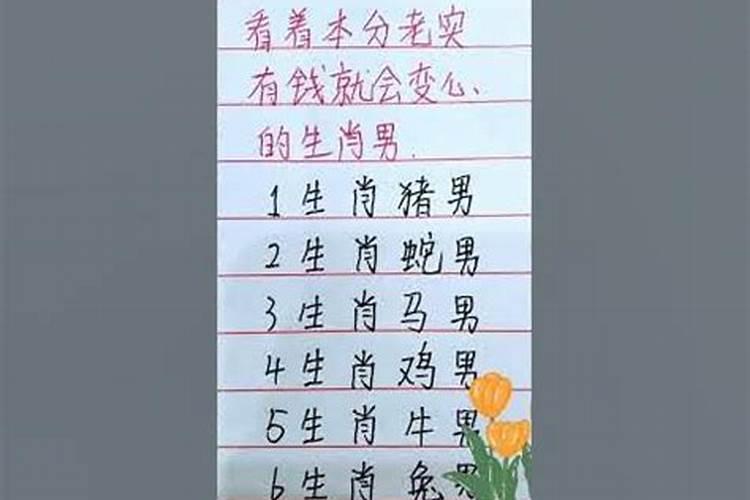 看着本分老实
有钱就会变心、
的生肖男.
1生肖猪男
2生肖蛇男
3生肖马男
4生肖鸡男
5生肖牛男
6生肖兔男